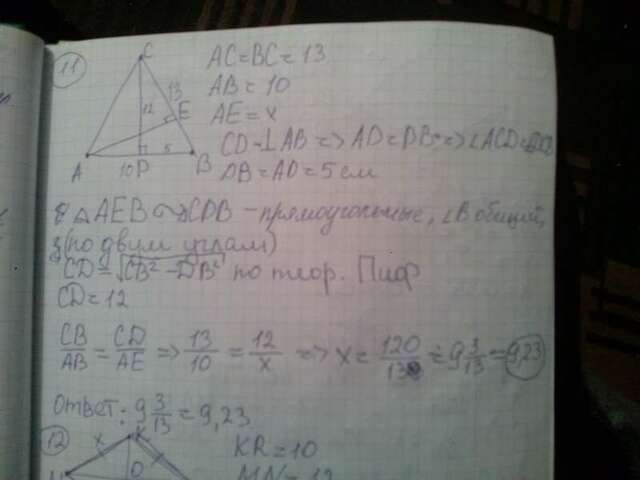 11
C
13
12
E
A
D
5
B
10
AC=BC=13
AB=10
AE=x
CD⊥AB=>AD=DB=>∠ACD=
DB=AD=5см
△AEB∾△CDB-прямоугольные, ∠B общий,
(по двум углам)
CD=√CB²-DB² по теор. Пиф
CD=12
CB/AB=CD/AE=>13/10=12/x=>x=120/13=9 3/13=9,23
Ответ: 9 3/13=9,23
12
x
K
O
KR=10
MN=12